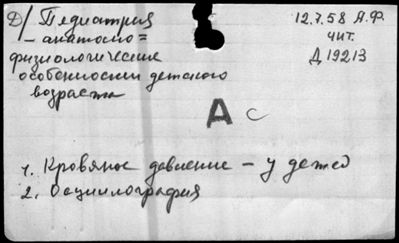 Д/ Педиатрия
– анатомо=
физиологические
особенности детского
возраста
12.7.58 Я.Ф.
чит.
Д 19213
А с
1. Кровяное давление – у детей
2. Осциллография